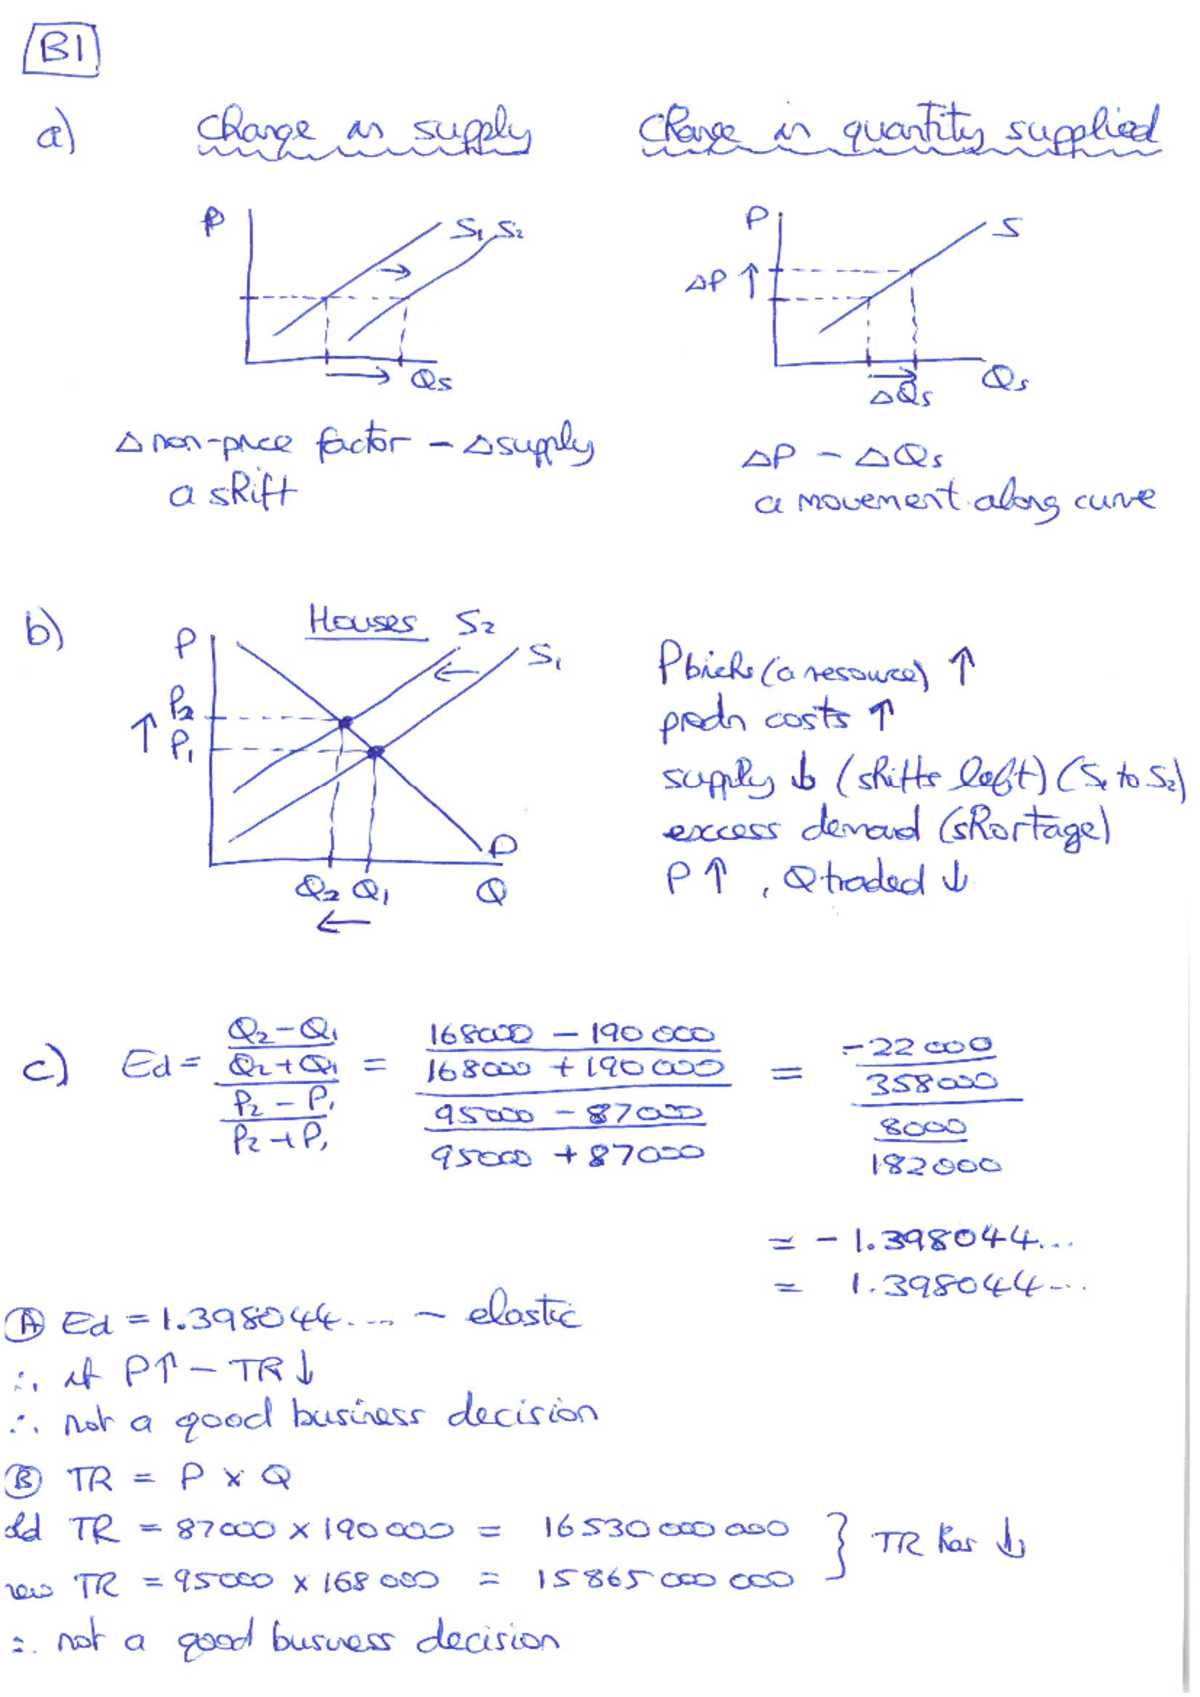 B1
a) change in supply change in quantity supplied
P S₁ S₂ P S
ΔP ↑
→ Qs → Qs
ΔQs
Δ non-price factor – Δ supply ΔP – ΔQs
a shift a movement along curve
b) Houses S₂
P S₁ Pbicks (a resource) ↑
P₂ predn costs ↑
↑ P₁ supply ↓ (shifts left) (S₁ to S₂)
excess demand (shortage)
D P ↑ , Q traded ↓
Q₂ Q₁ Q
←
c) Ed = Q₂ – Q₁ / Q₂ + Q₁ / P₂ – P₁ / P₂ + P₁ = 168000 – 190 000 / 168000 + 190 000 / 95000 – 87000 / 95000 + 87000 = -22 000 / 358000 / 8000 / 182000
= – 1.398044...
= 1.398044...
Ⓐ Ed = 1.398044.... – elastic
∴ if P↑ – TR ↓
∴ not a good business decision
Ⓑ TR = P x Q
old TR = 87000 x 190 000 = 16 530 000 000 } TR has ↓
new TR = 95000 x 168 000 = 15 865 000 000
∴ not a good business decision